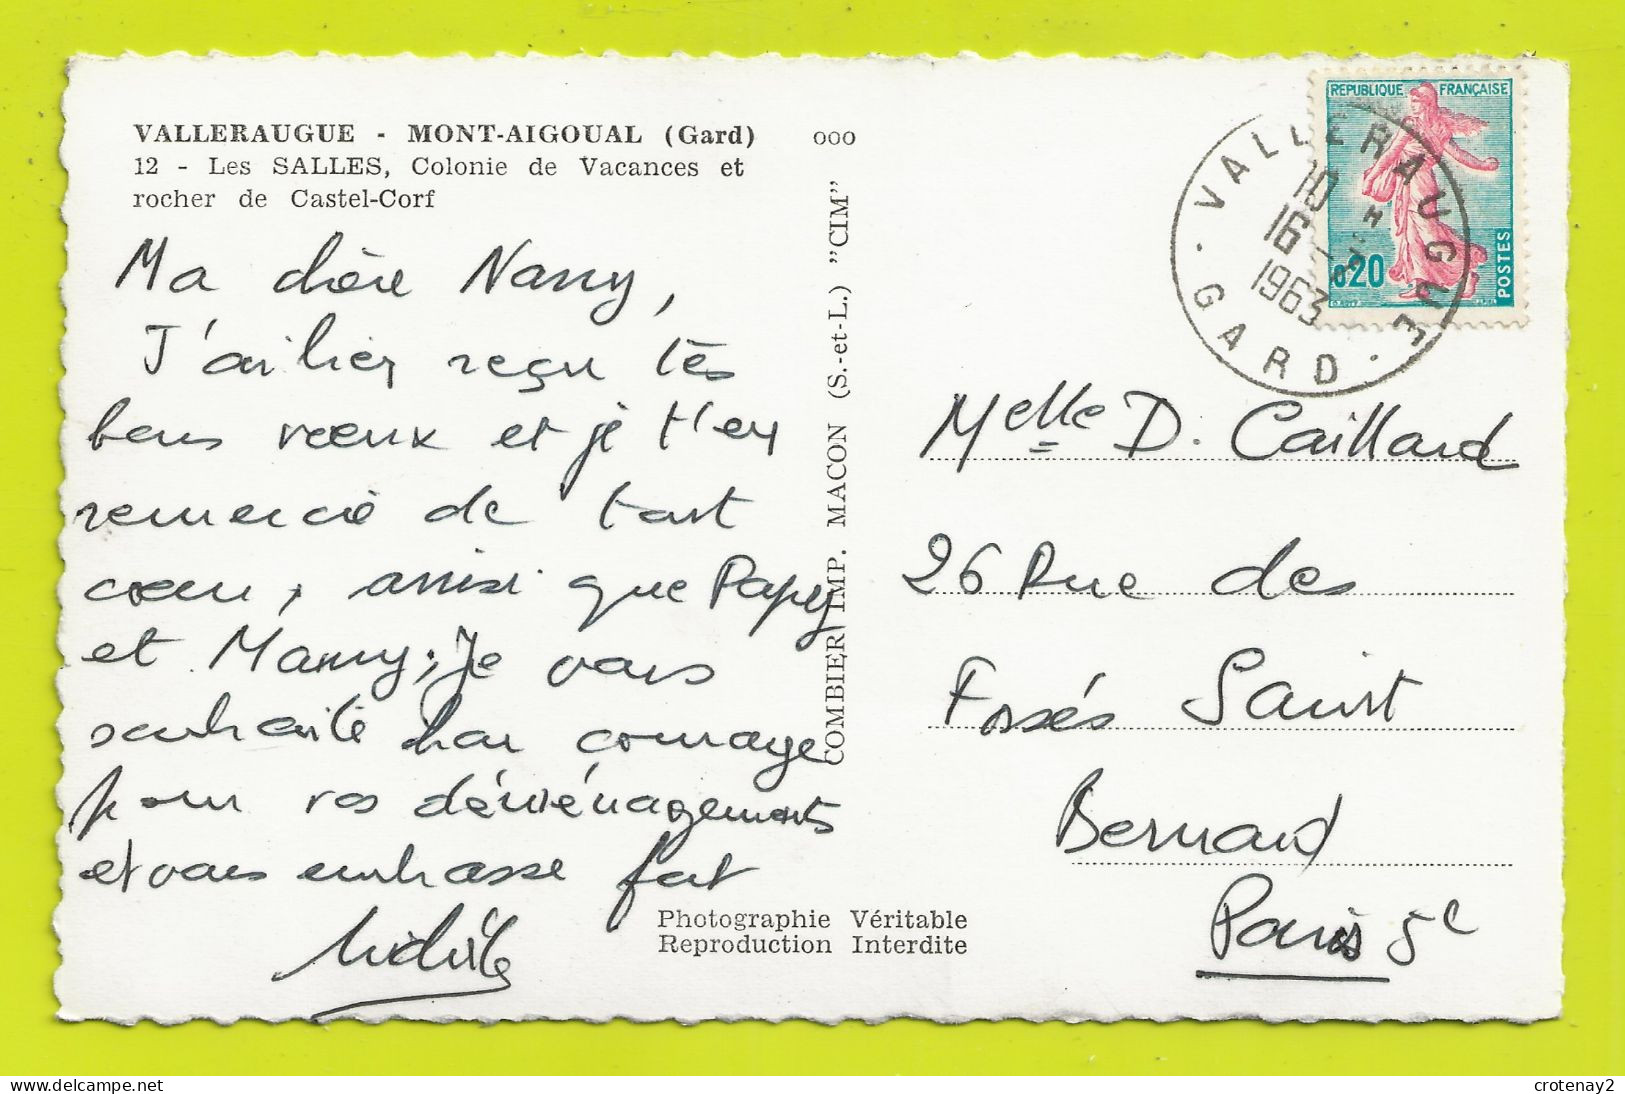 VALLERAUGUE - MONT-AIGOUAL (Gard)
12 - Les SALLES, Colonie de Vacances et
rocher de Castel-Corf
000
Ma chère Nanny,
J'ai hier reçu tes
bons voeux et je t'en
remercie de tout
coeur, ainsi que Papy
et Mamy; Je vous
souhaite bon courage
pour vos déménagements
et vous embrasse fort
COMBIER IMP. MACON (S.-et-L.) "CIM"
Photographie Véritable
Reproduction Interdite
REPUBLIQUE FRANÇAISE
0,20
POSTES
VALLERAUGUE
10 H
16
1963
GARD
Melle D. Caillard
26 Rue des
Fossés Saint
Bernard
Paris 5e
crotenay2